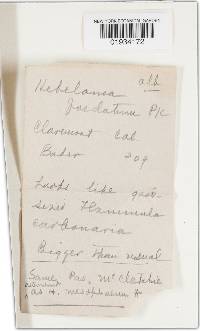 NEW YORK BOTANICAL GARDEN
01934172
Hebeloma alb
foedatum Pk
Claremont Cal.
Baker 209
Looks like good-
sized Flammula
carbonaria
Bigger than usual
Same, Pas, McClatchie
as H. mesophaeum